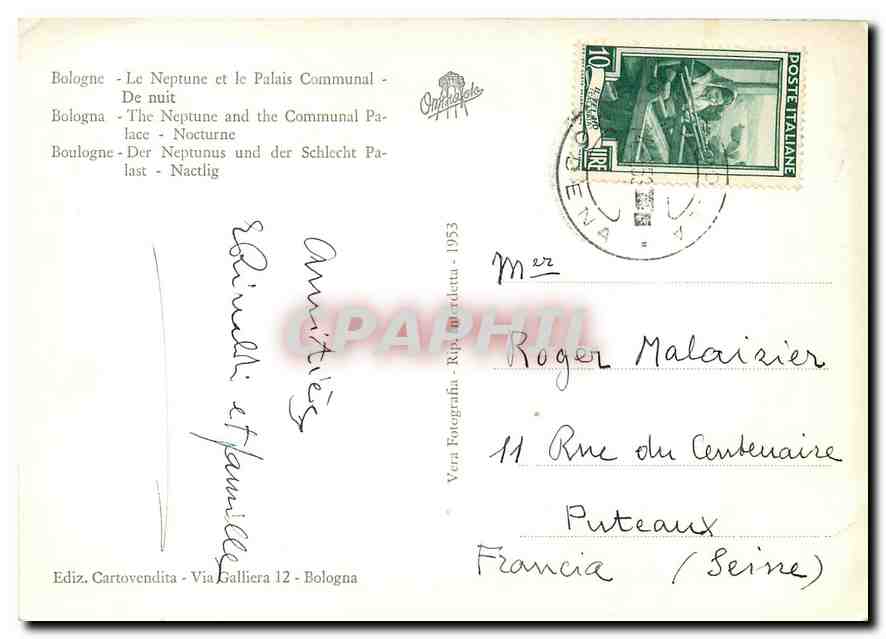 Bologne - Le Neptune et le Palais Communal -
De nuit
Bologna - The Neptune and the Communal Pa-
lace - Nocturne
Boulogne - Der Neptunus und der Schlecht Pa-
last - Nactlig
10
LIRE
POSTE ITALIANE
MODENA
Amitiés
et famille
CPAPHIL
Vera Fotografia - Rip. Interdetta - 1953
Mer
Roger Malaizier
11 Rue du Centenaire
Puteaux
Francia (Seine)
Ediz. Cartovendita - Via Galliera 12 - Bologna